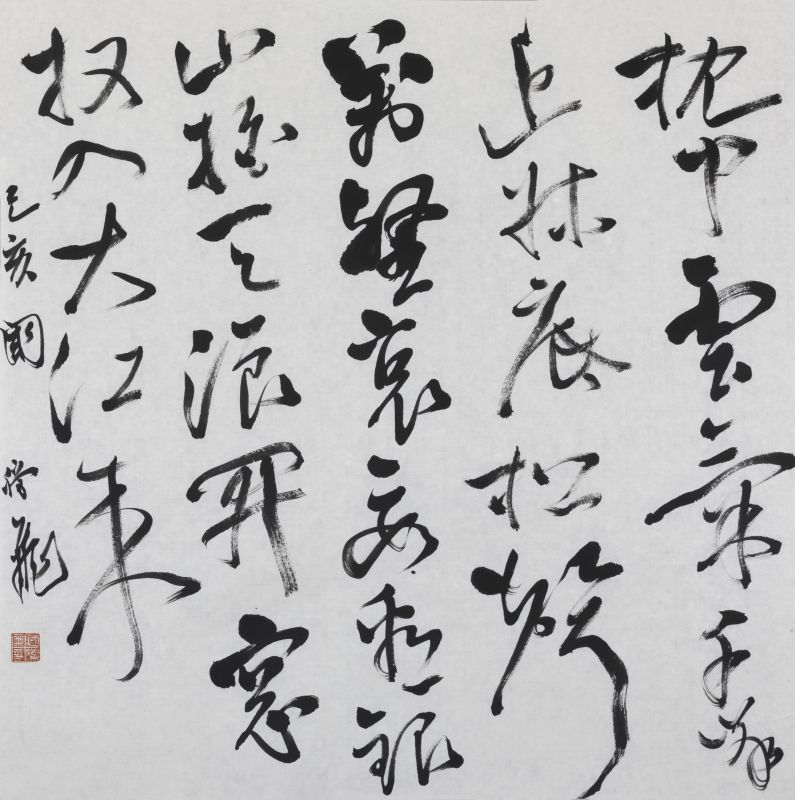 枕中雲氣千峰
近牀底松聲
萬壑哀要看銀
山拍天浪開窗
放入大江來
己亥